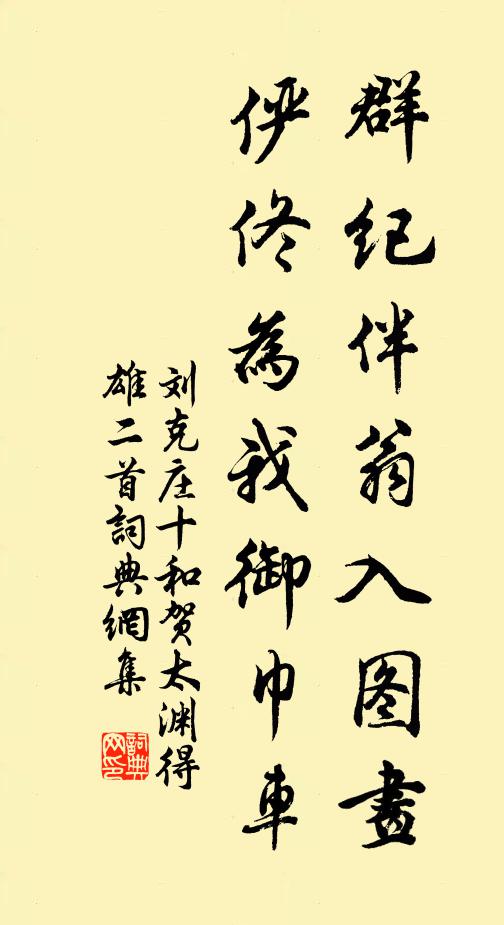 群纪伴翁入图畫
伊佟為我御巾車
刘克庄十和贺太渊得
雄二首詞典網集
詞典網印